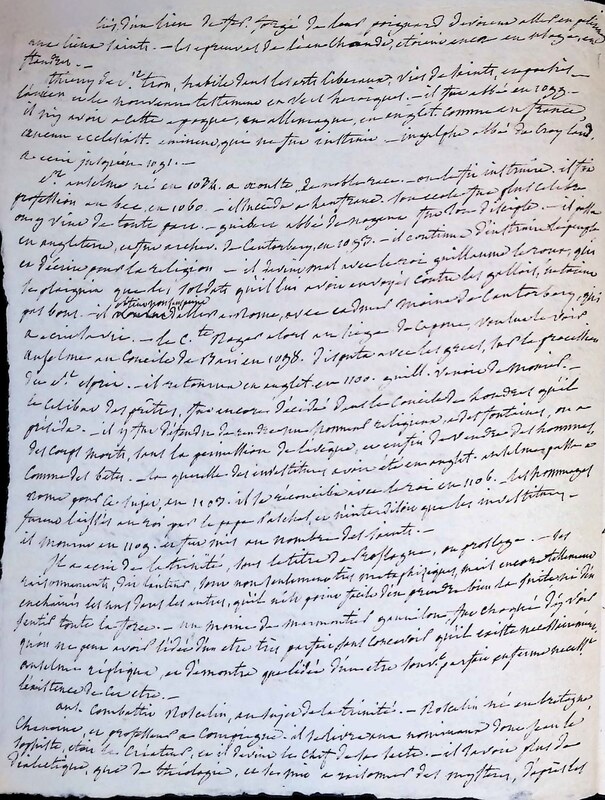 liés d'un lien de fer, forgé de leur poignard devoient aller en pélerin
aux lieux saints. — les epreuves de l'eau chaude, étoient encor en usage, en
flandres. —
thierry de St. tron, habile dans les arts liberaux, vies de saints,
l'ancien et le nouveau testament en vers heroiques. — il fut abbé en 1099. —
il n'y avoit a cette epoque, en allemagne, en anglet. comme en france,
aucun ecclesiast. eminent, qui ne fut instruit. — ingulphe abbé de Croyland,
a ecrit jusqu'en 1091. —
St. anselme né en 1034. a aouste, de noble race. — on le fit instruire. il fit
profession au bec, en 1060. — il succéda a lanfranc. son ecole fut plus celebre
on y vint de toute part. — guibert abbé de nogent fut son disciple. — il alla
en angleterre, et fut archev. de Cantorbery, en 1093. — il continua d'instruire le peuple
et d'écrire pour la religion. — il devint mal avec le roi guillaume le roux, qui
se plaignit que les soldats qu'il lui avoit envoyés contre les gallois, n'etoient
pas bons. — il obtint d'aller a Rome, avec eadmer moine de Cantorbery, qui
a ecrit sa vie. — le Cte Roger alors au siege de Capoue, voulut le voir
anselme au Concile de Bari en 1098. disputa avec les grecs, sur la procession
du St. esprit. — il retourna en anglet. en 1100. guill. venoit de mourir. —
le celibat des prêtres, fut encore décidé dans le Concile de londres qu'il
présida. — il y fut défendu de rendre sans permis. religieux, a des fontaines, ou a
des corps morts, sans la permission de l'évêque, et enfin de vendre des hommes,
comme des betes. — la querelle des investitures avoit été en anglet. anselme passa a
Rome pour ce sujet, en 1103. il se reconcilia avec le roi en 1106. les hommages
furent laissés au roi par le pape Paschal, et n'interdit que les investitures. —
il mourut en 1109. et fut mis au nombre des saints. —
Il a ecrit de la trinité, sous le titre de — ses
raisonnements, dit l'auteur, sont non seulement très metaphisiques, mais encore tellement
enchainés les uns dans les autres, qu'il n'est point facile d'en prendre bien la suite ni d'en
sentir toute la force. — un moine de marmoutier gaunilon, fut choqué d'y voir
qu'on ne peut avoir l'idée d'un etre très parfait sans concevoir qu'il existe nécessairement,
anselme réplique, et démontre que l'idée d'un etre souv. parfait enferme necess.
l'existence de cet etre. —
ans. combattit Roscelin, au sujet de la trinité. — Roscelin né en bretagne
Chanoine, et professeur a Compiegne. il
sophiste, étoit le Créateur, et il devint le chef de sa secte. — il savoit plus de
dialectique, que de theologie, et se mit a raisonner des mystères, d'après les